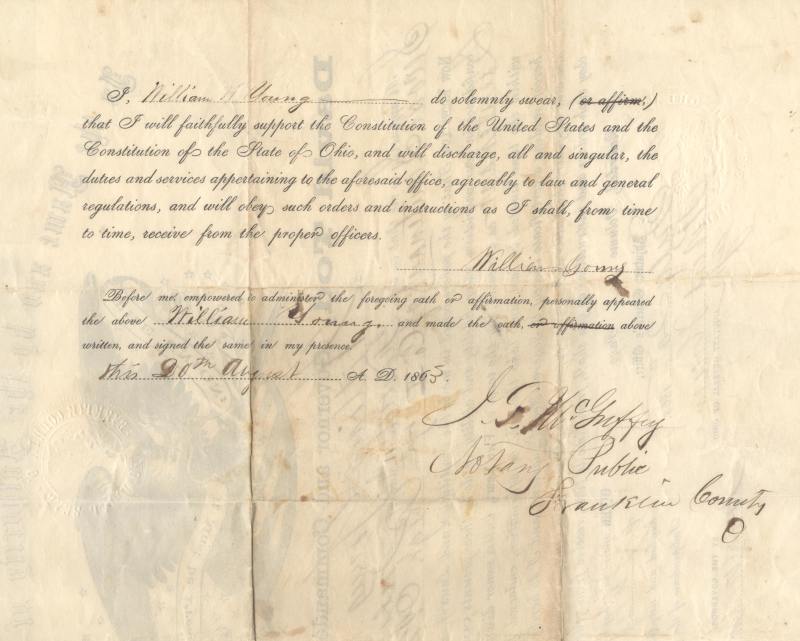 I, William H Young do solemnly swear, (or affirm,)
that I will faithfully support the Constitution of the United States and the
Constitution of the State of Ohio, and will discharge, all and singular, the
duties and services appertaining to the aforesaid office, agreeably to law and general
regulations, and will obey such orders and instructions as I shall, from time
to time, receive from the proper officers.
William Young
Before me, empowered to administer the foregoing oath or affirmation, personally appeared
the above William Young, and made the oath, or affirmation above
written, and signed the same in my presence.
this 20th August A. D. 1863.
J. F. McGuffey
Notary Public
Franklin County
O